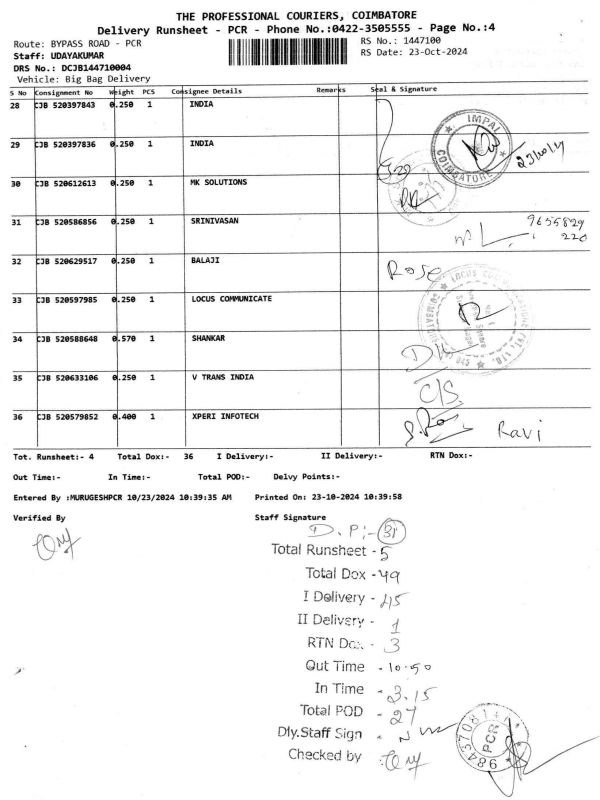 THE PROFESSIONAL COURIERS, COIMBATORE
Delivery Runsheet - PCR - Phone No.:0422-3505555 - Page No.:4
Route: BYPASS ROAD - PCR
RS No.: 1447100
Staff: UDAYAKUMAR
RS Date: 23-Oct-2024
DRS No.: DCJB144710004
Vehicle: Big Bag Delivery
S No Consignment No Weight PCS Consignee Details Remarks Seal & Signature
28 CJB 520397843 0.250 1 INDIA
IMPAL
COIMBATORE
23/10/24
29 CJB 520397836 0.250 1 INDIA
30 CJB 520612613 0.250 1 MK SOLUTIONS
31 CJB 520586856 0.250 1 SRINIVASAN
9655829
220
32 CJB 520629517 0.250 1 BALAJI
Rose
33 CJB 520597985 0.250 1 LOCUS COMMUNICATE
34 CJB 520588648 0.570 1 SHANKAR
35 CJB 520633106 0.250 1 V TRANS INDIA
C/S
36 CJB 520579852 0.400 1 XPERI INFOTECH
Ravi
Tot. Runsheet:- 4 Total Dox:- 36 I Delivery:- II Delivery:- RTN Dox:-
Out Time:- In Time:- Total POD:- Delvy Points:-
Entered By :MURUGESHPCR 10/23/2024 10:39:35 AM Printed On: 23-10-2024 10:39:58
Verified By Staff Signature
D.P:- 31
Total Runsheet - 5
Total Dox - 49
I Delivery - 45
II Delivery - 1
RTN Dox - 3
Out Time - 10.50
In Time - 3.15
Total POD - 27
Dly.Staff Sign -
Checked by
PCR